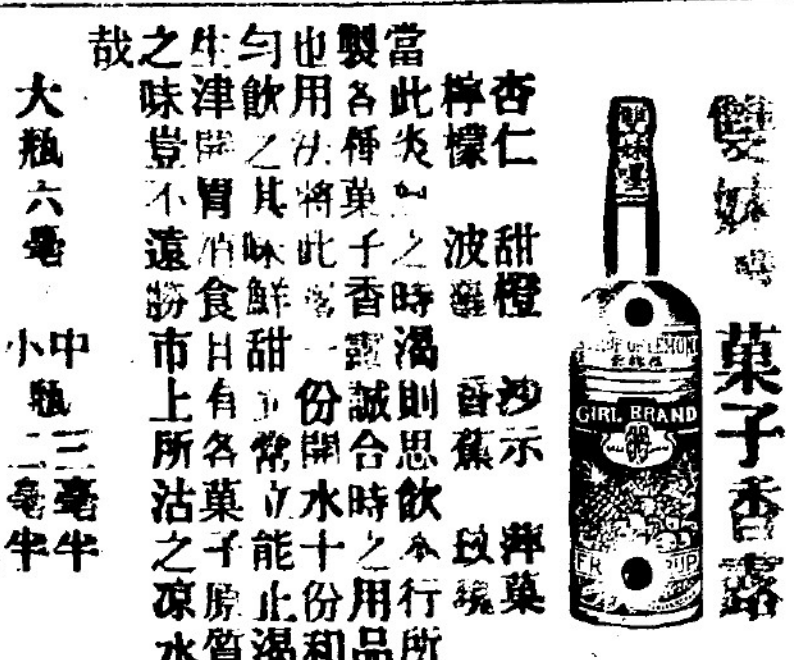 雙妹嘜 菓子香露
雙妹嘜
GIRL BRAND
杏仁 甜橙 沙示 萍菓
檸檬 波羅 香蕉 玫瑰
當此炎之時渴則思飲本行所
製各種菓子香露誠合時之用品
也用法將此露一份開水十份和
勻飲之其味鮮甜常立能止渴
生津開胃消食且有各菓子原質
之味豈不遠勝市上所沽之凉水
哉
大瓶六毫
中瓶三毫半
小瓶二毫半